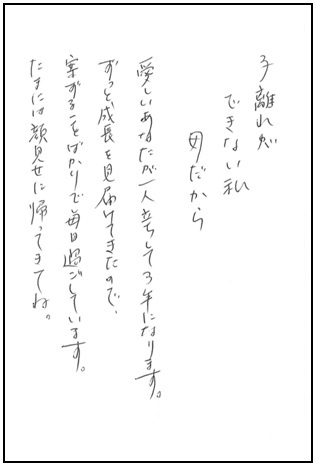 子離れが
できない私
母だから
愛しいあなたが一人立ちして3年になります。
ずっと、成長を見届けてきたので、
案ずることばかりで毎日過ごしています。
たまには顔見せに帰ってきてね。